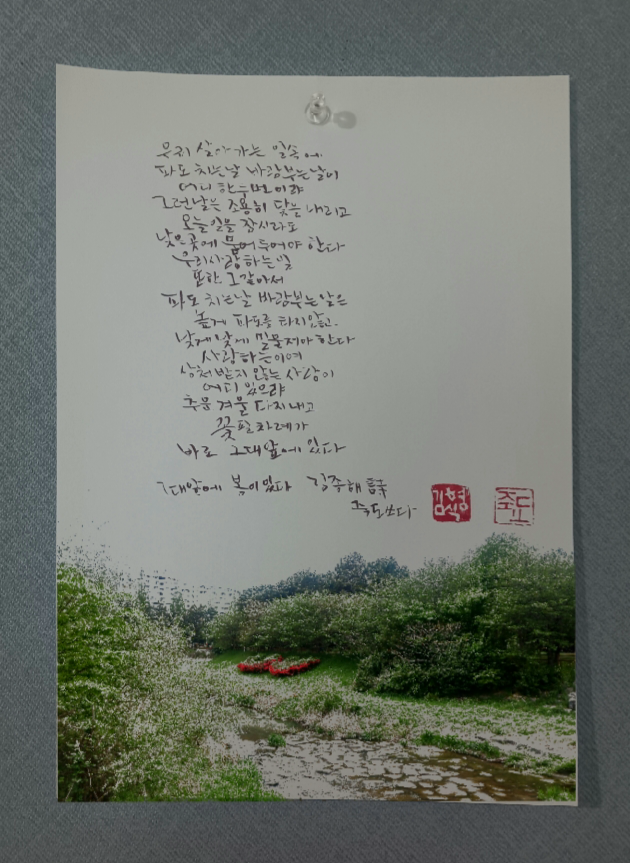 우리 살아가는 일 속에
파도 치는날 바람부는날이
어디 한두번이랴
그런날은 조용히 닻을 내리고
오늘일을 잠시라도
낮은곳에 묻어두어야 한다
우리사랑하는 일
또한 그같아서
파도 치는날 바람부는날은
높게 파도를 타지않고
낮게낮게 밀물져야한다
사랑하는이여
상처받지 않는 사랑이
어디 있으랴
추운겨울 다지내고
꽃필차례가
바로 그대앞에 있다
그대앞에 봄이있다 김종해 詩
죽도쓰다
김형식
죽도